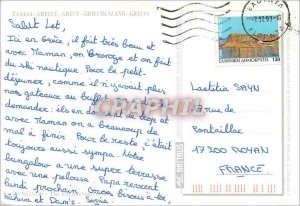 GREECE - GRÈCE - GRIECHENLAND - GRECIA
Salut Let,
Ici en Grèce, il fait très beau et
avec Maman, on bronze et on fait
du ski nautique. Pour le petit-
déjeuner, comme il n'y avait plus
nos gateaux au buffet
demander: ils en donnent de trop et
avec Maman on a beaucoup de
mal à finir. Pour le reste, c'était
toujours aussi sympa. Notre
bungalow a une super terrasse
avec une pelouse. Papa revient
lundi prochain. Gros bisou à toi,
Kahina et Dam's. Sonia.
ΕΛΛΗΝΙΚΗ ΔΗΜΟΚΡΑΤΙΑ 120
Laetitia SAYN
rue de
Pontaillac
17200 ROYAN
FRANCE